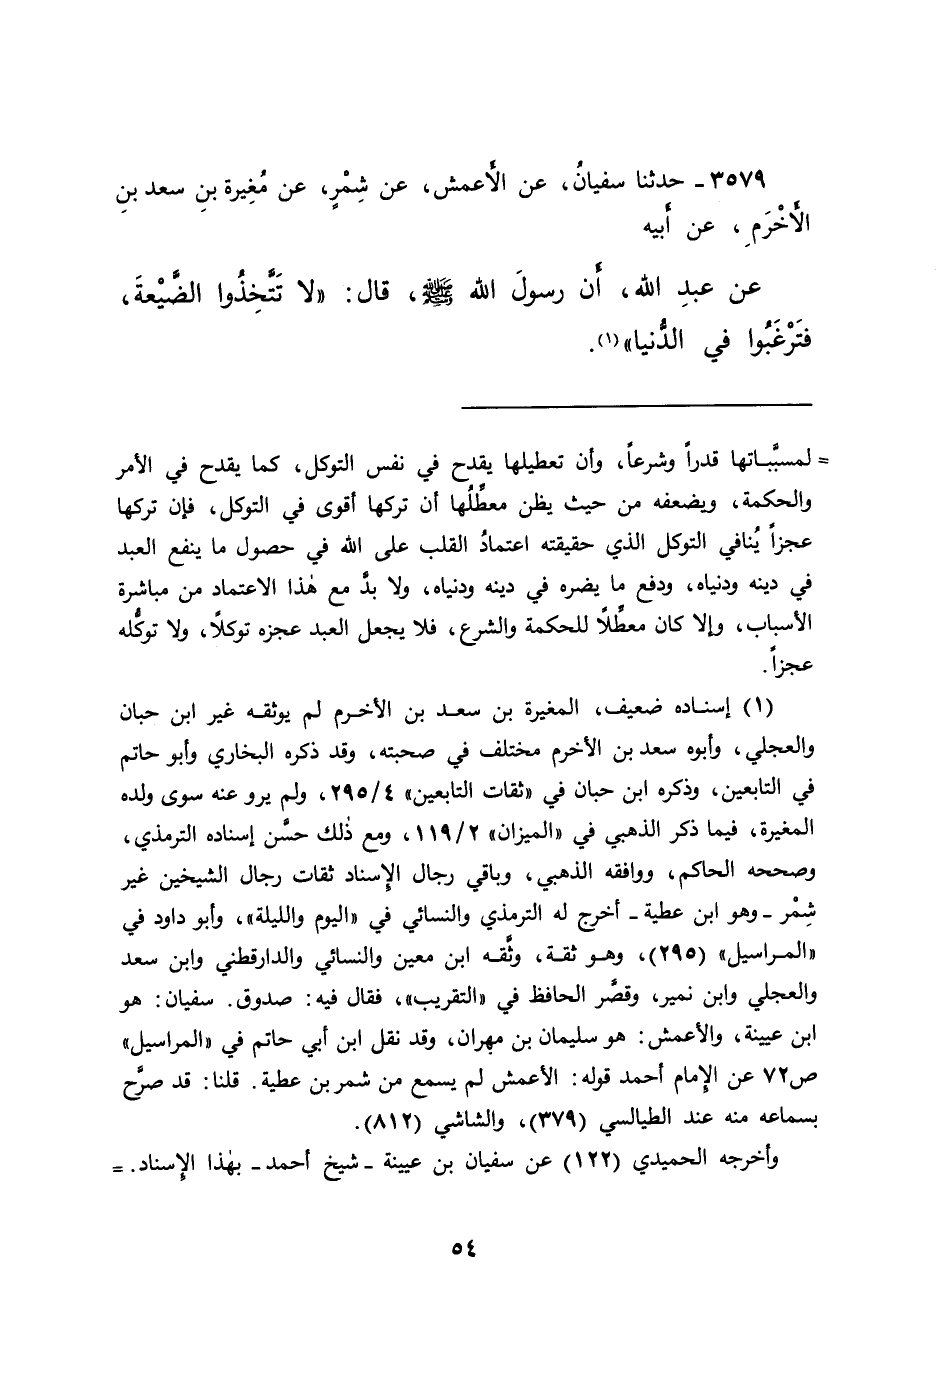 ٣٥٧٩ - حدثنا سفيانُ، عن الأَعمش، عن شِمْرٍ، عن مُغِيرة بنِ سعد بنِ
الأَخْرَمِ، عن أَبيه
عن عبدِ الله، أَن رسولَ الله ﷺ، قال: «لا تَتَّخِذُوا الضَّيْعةَ،
فتَرْغَبُوا في الدُّنيا»(١).
= لمسبَّباتها قدراً وشرعاً، وأن تعطيلها يقدح في نفس التوكل، كما يقدح في الأمر
والحكمة، ويضعفه من حيث يظن معطِّلُها أن تركها أقوى في التوكل، فإن تركها
عجزاً يُنافي التوكل الذي حقيقته اعتمادُ القلب على الله في حصول ما ينفع العبد
في دينه ودنياه، ودفع ما يضره في دينه ودنياه، ولا بدَّ مع هٰذا الاعتماد من مباشرة
الأسباب، وإلا كان معطِّلاً للحكمة والشرع، فلا يجعل العبد عجزه توكلاً، ولا توكُّله
عجزاً.
(١) إسناده ضعيف، المغيرة بن سعد بن الأخرم لم يوثقه غير ابن حبان
والعجلي، وأبوه سعد بن الأخرم مختلف في صحبته، وقد ذكره البخاري وأبو حاتم
في التابعين، وذكره ابن حبان في «ثقات التابعين» ٢٩٥/٤، ولم يرو عنه سوى ولده
المغيرة، فيما ذكر الذهبي في «الميزان» ١١٩/٢، ومع ذٰلك حسَّن إسناده الترمذي،
وصححه الحاكم، ووافقه الذهبي، وباقي رجال الإسناد ثقات رجال الشيخين غير
شِمْر - وهو ابن عطية - أخرج له الترمذي والنسائي في «اليوم والليلة»، وأبو داود في
«المراسيل» (٢٩٥)، وهو ثقة، وثَّقه ابن معين والنسائي والدارقطني وابن سعد
والعجلي وابن نمير، وقصَّر الحافظ في «التقريب»، فقال فيه: صدوق. سفيان: هو
ابن عيينة، والأعمش: هو سليمان بن مهران، وقد نقل ابن أبي حاتم في «المراسيل»
ص٧٢ عن الإمام أحمد قوله: الأعمش لم يسمع من شمر بن عطية. قلنا: قد صرَّح
بسماعه منه عند الطيالسي (٣٧٩)، والشاشي (٨١٢).
وأخرجه الحميدي (١٢٢) عن سفيان بن عيينة - شيخ أحمد - بهٰذا الإسناد. =
٥٤